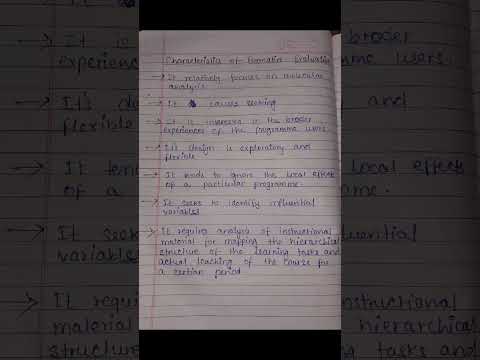 Characteristics of Formative Evaluation
→ It relatively focuses on molecular
analysis
→ It is cause seeking
→ It is interested in the broder
experiences of the programme users.
→ It's design is exploratory and
flexible
→ It tends to ignore the local effects
of a particular programme.
→ It seeks to identify influential
variables
→ It requires analysis of instructional
material for mapping the hierarchical
structure of the learning tasks and
actual teaching of the course for
a certian period